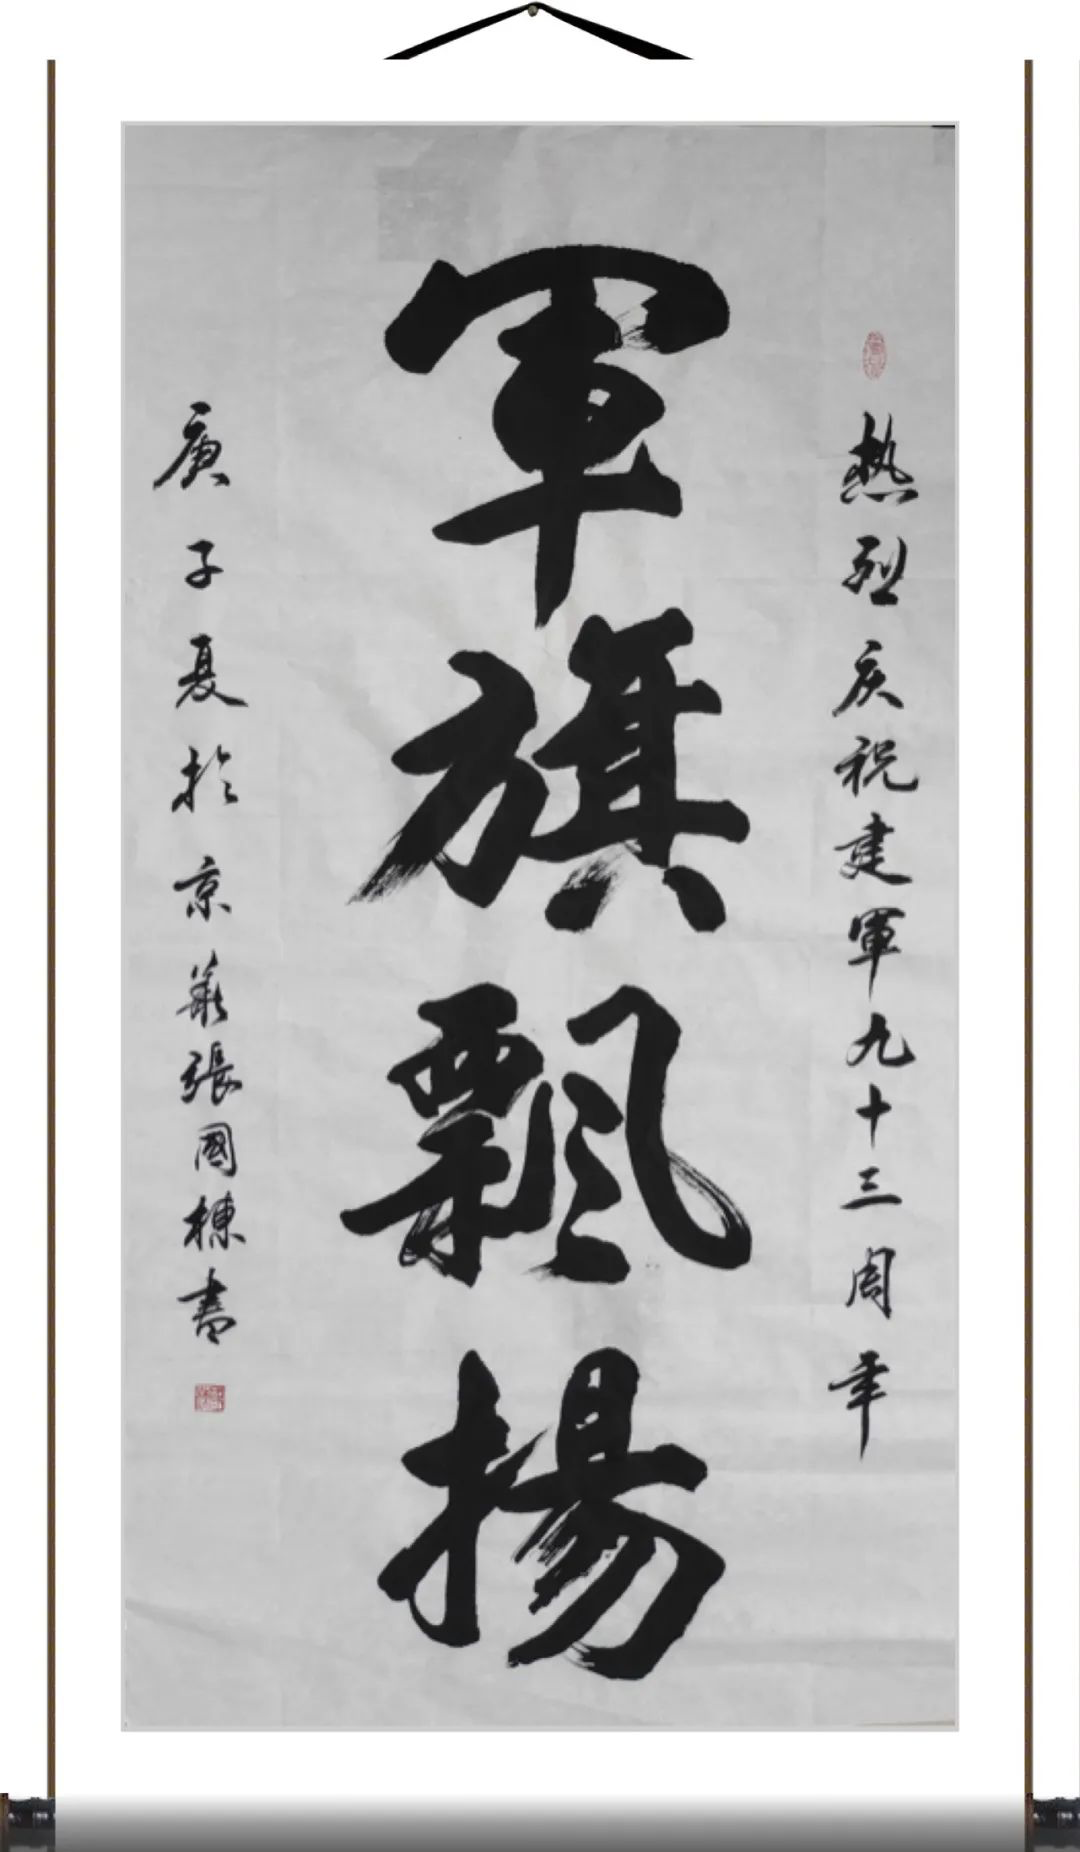 热烈庆祝建軍九十三周年
軍旗飄揚
庚子夏於京華張國棟書